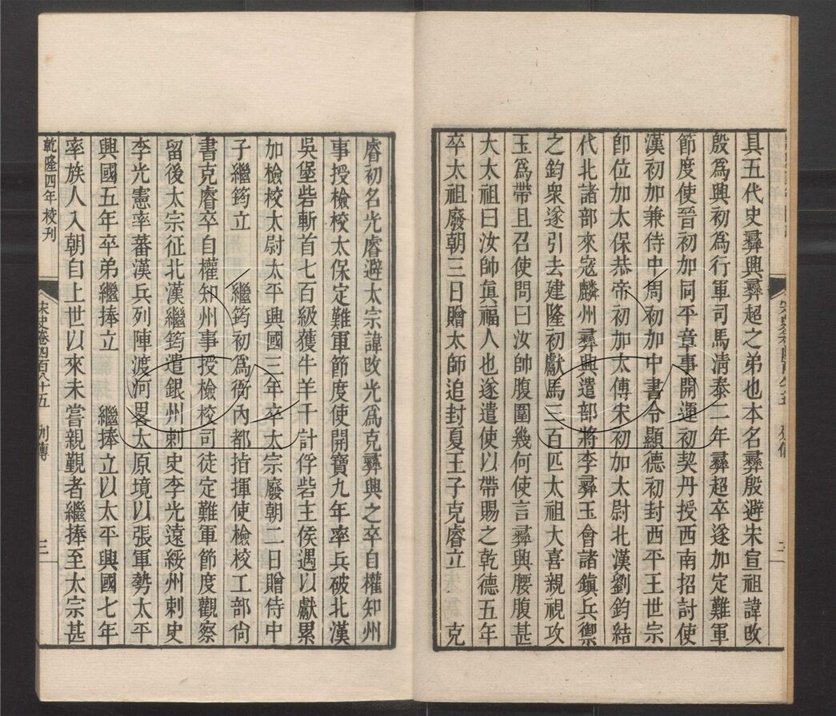 具五代史彝興彝超之弟也本名彝殷避宋宣祖諱改
殷爲興初爲行軍司馬清泰二年彝超卒遂加定難軍
節度使晉初加同平章事開運初契丹授西南招討使
漢初加兼侍中周初加中書令顯德初封西平王世宗
卽位加太保恭帝初加太傅宋初加太尉北漢劉鈞結
代北諸部來寇麟州彝興遣部將李彝玉會諸鎭兵禦
之鈞衆遂引去建隆初獻馬三百匹太祖大喜親視攻
玉爲帶且召使問曰汝帥腹圍幾何使言彝興腰腹甚
大太祖曰汝帥眞福人也遂遣使以帶賜之乾德五年
卒太祖廢朝三日贈太師追封夏王子克睿立 克
睿初名光睿避太宗諱改光爲克彝興之卒自權知州
事授檢校太保定難軍節度使開寶九年率兵破北漢
吳堡砦斬首七百級獲牛羊千計俘砦主侯遇以獻累
加檢校太尉太平興國三年卒太宗廢朝二日贈侍中
子繼筠立 繼筠初爲衙內都指揮使檢校工部尚
書克睿卒自權知州事授檢校司徒定難軍節度觀察
留後太宗征北漢繼筠遣銀州刺史李光遠綏州刺史
李光憲率蕃漢兵列陣渡河畧太原境以張軍勢太平
興國五年卒弟繼捧立 繼捧立以太平興國七年
率族人入朝自上世以來未嘗親覲者繼捧至太宗甚
乾隆四年校刊
宋史卷四百八十五 列傳
三